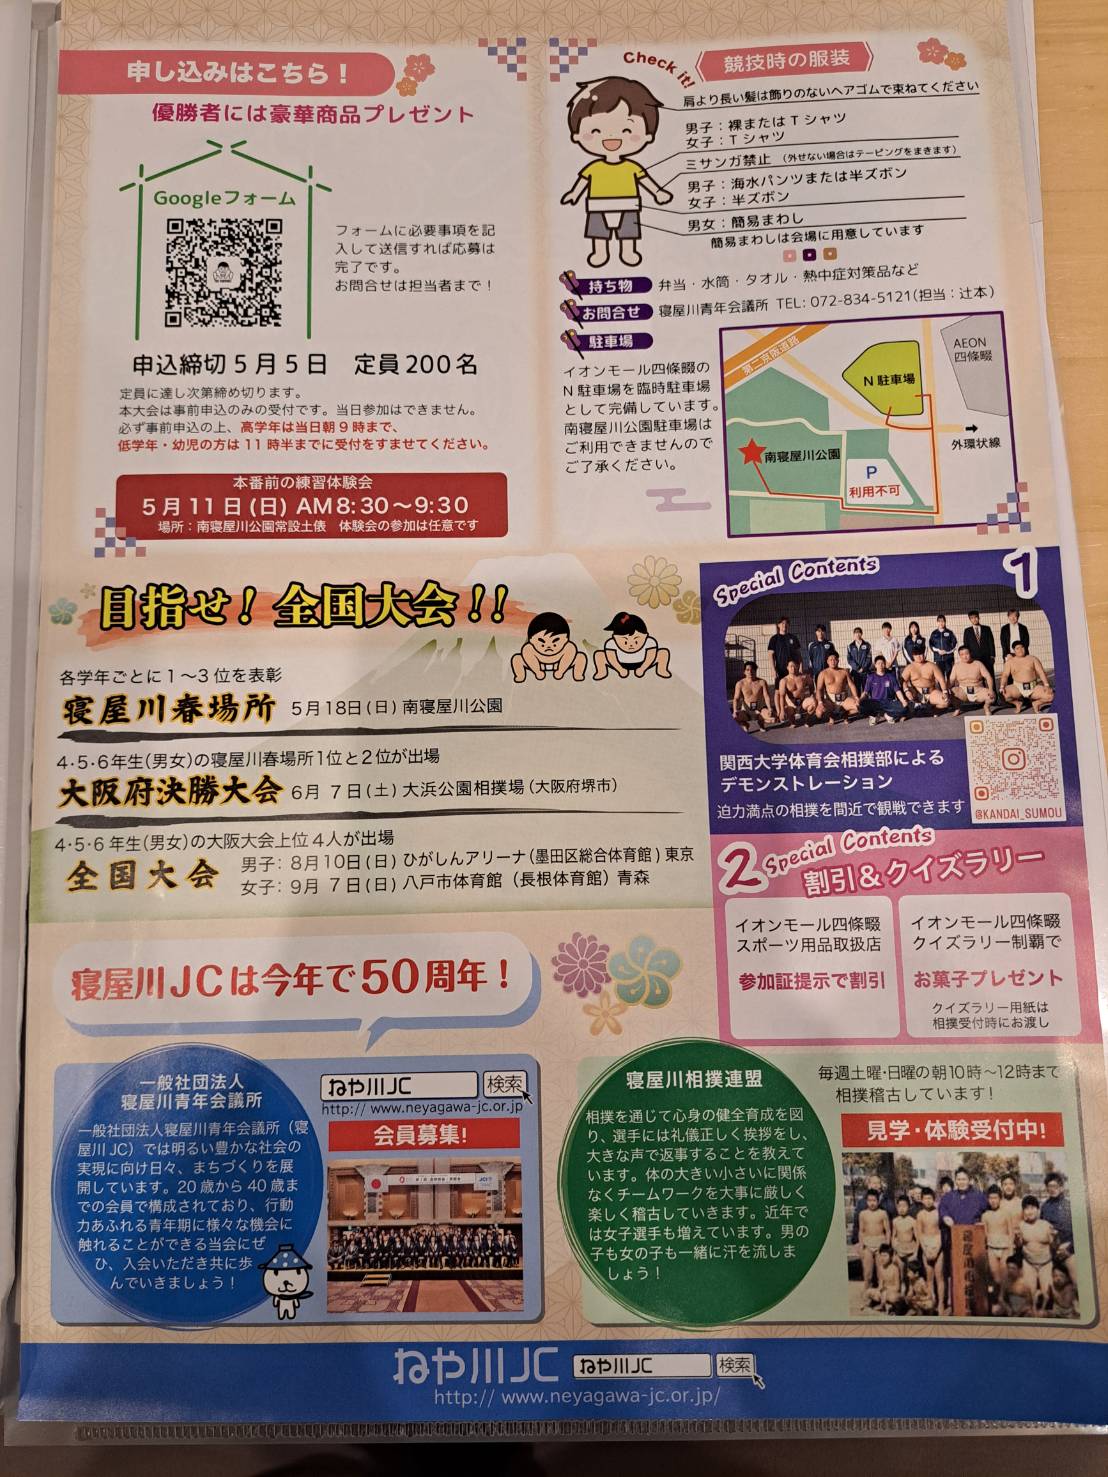 申し込みはこちら！
優勝者には豪華商品プレゼント
Googleフォーム
フォームに必要事項を記
入して送信すれば応募は
完了です。
お問合せは担当者まで！
申込締切５月５日　定員200名
定員に達し次第締め切ります。
本大会は事前申込のみの受付です。当日参加はできません。
必ず事前申込の上、高学年は当日朝９時まで、
低学年・幼児の方は11時半までに受付をすませてください。
本番前の練習体験会
５月11日(日) AM8:30〜9:30
場所：南寝屋川公園常設土俵　体験会の参加は任意です
Check it!
競技時の服装
肩より長い髪は飾りのないヘアゴムで束ねてください
男子：裸またはＴシャツ
女子：Ｔシャツ
ミサンガ禁止　(外せない場合はテーピングをまきます)
男子：海水パンツまたは半ズボン
女子：半ズボン
男女：簡易まわし
簡易まわしは会場に用意しています
持ち物　弁当・水筒・タオル・熱中症対策品など
お問合せ　寝屋川青年会議所　TEL: 072-834-5121(担当：辻本)
駐車場
イオンモール四條畷の
Ｎ駐車場を臨時駐車場
として完備しています。
南寝屋川公園駐車場は
ご利用できませんので
ご了承ください。
第二京阪道路
AEON
四條畷
Ｎ駐車場
外環状線
南寝屋川公園
P
利用不可
目指せ！全国大会！！
各学年ごとに１〜３位を表彰
寝屋川春場所　５月18日(日) 南寝屋川公園
4・5・6年生(男女)の寝屋川春場所１位と２位が出場
大阪府決勝大会　６月 ７日(土) 大浜公園相撲場(大阪府堺市)
4・5・6年生(男女)の大阪大会上位４人が出場
全国大会
男子：８月10日(日) ひがしんアリーナ(墨田区総合体育館) 東京
女子：９月 ７日(日) 八戸市体育館（長根体育館）青森
Special Contents
1
関西大学体育会相撲部による
デモンストレーション
迫力満点の相撲を間近で観戦できます
@KANDAI_SUMOU
2 Special Contents
割引＆クイズラリー
イオンモール四條畷
スポーツ用品取扱店
参加証提示で割引
イオンモール四條畷
クイズラリー制覇で
お菓子プレゼント
クイズラリー用紙は
相撲受付時にお渡し
寝屋川JCは今年で50周年！
一般社団法人
寝屋川青年会議所
一般社団法人寝屋川青年会議所（寝
屋川JC）では明るい豊かな社会の
実現に向け日々、まちづくりを展
開しています。20歳から40歳ま
での会員で構成されており、行動
力あふれる青年期に様々な機会に
触れることができる当会にぜ
ひ、入会いただき共に歩
んでいきましょう！
ねや川JC　検索
http:// www.neyagawa-jc.or.jp
会員募集!
寝屋川相撲連盟
相撲を通じて心身の健全育成を図
り、選手には礼儀正しく挨拶をし、
大きな声で返事することを教えて
います。体の大きい小さいに関係
なくチームワークを大事に厳しく
楽しく稽古していきます。近年で
は女子選手も増えています。男の
子も女の子も一緒に汗を流しま
しょう！
毎週土曜・日曜の朝10時〜12時まで
相撲稽古しています!
見学・体験受付中!
ねや川JC　ねや川JC　検索
http:// www.neyagawa-jc.or.jp/